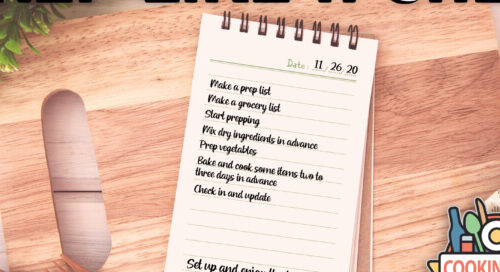 Date: 11/26/20
Make a prep list
Make a grocery list
Start prepping
Mix dry ingredients in advance
Prep vegetables
Bake and cook some items two to
three days in advance
Check in and update
Set up and enjoy the
COOKIN